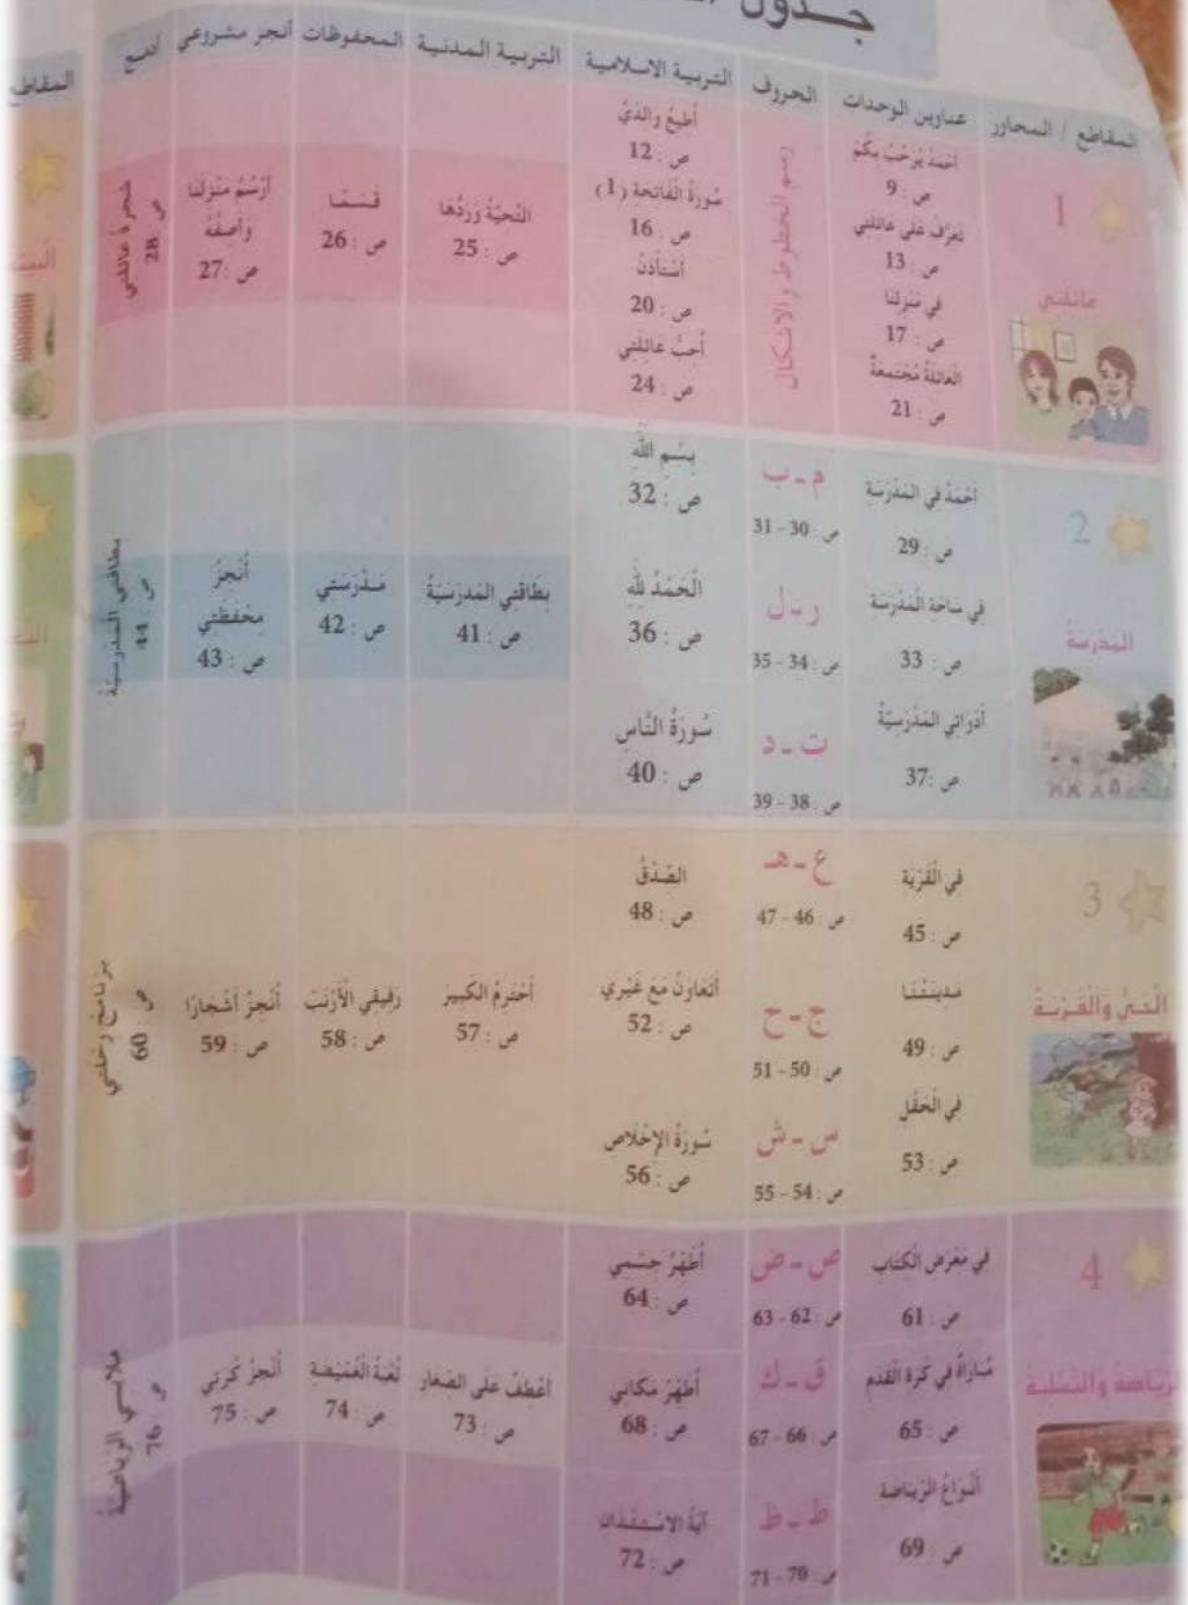 جدول
المقاطع / المحاور
عناوين الوحدات
الحروف
التربية الاسلامية
التربية المدنية
المحفوظات
أنجز مشروعي
أدمج
المقاطع
1
عائلتي
أحْمَدُ يُرَحِّبُ بِكُمْ
ص : 9
تعرَّف على عائلتي
ص : 13
في منزلنا
ص : 17
العائلةُ مُجْتمعةٌ
ص : 21
رسم الخطوط والاشكال
أطيعُ والديَّ
ص : 12
سُورةُ الْفاتحة (1)
ص : 16
أسْتأذنُ
ص : 20
أحبُّ عائلتي
ص : 24
التّحيّةُ وَرَدُّها
ص : 25
قسَمًا
ص : 26
أرْسُمُ منْزلَنا
وأصفُهُ
ص : 27
شجرةُ عائلتي
ص : 28
2
المدْرسةُ
أحْمَدُ في المَدْرَسَةِ
ص : 29
في سَاحَةِ الْمَدْرَسَةِ
ص : 33
أدَوَاتي المَدْرَسِيَّةُ
ص : 37
م - ب
ص : 30 - 31
ر - ل
ص : 34 - 35
ت - د
ص : 38 - 39
بِسْمِ اللَّهِ
ص : 32
الْحَمْدُ لِلَّهِ
ص : 36
سُورَةُ النَّاسِ
ص : 40
بِطَاقَتي المَدرَسيّةُ
ص : 41
مَدْرَسَتي
ص : 42
أُنْجِزُ
مِحْفَظتي
ص : 43
بطاقتي المدرسيّةُ
ص : 44
3
الْحَيُّ وَالْقَرْيَةُ
في الْقَرْيَة
ص : 45
مَدينَتُنَا
ص : 49
في الْحَقْل
ص : 53
ع - هـ
ص : 46 - 47
ج - ح
ص : 50 - 51
س - ش
ص : 54 - 55
الصّدْقُ
ص : 48
أتَعَاوَنُ مَعَ غَيْري
ص : 52
سُورَةُ الإخْلَاص
ص : 56
أحْترمُ الكَبيرَ
ص : 57
رَفيقي الأَرْنَبُ
ص : 58
أُنْجزُ أشْجَارًا
ص : 59
برنامجُ رحْلتي
ص : 60
4
الرّياضة والتّسلية
في مَعْرَض الْكتَاب
ص : 61
مُباراةٌ في كُرة القدَم
ص : 65
أنْوَاعُ الرّيَاضَة
ص : 69
ص - ض
ص : 62 - 63
ق - ك
ص : 66 - 67
ط - ظ
ص : 70 - 71
أُطَهّرُ جسْمي
ص : 64
أُطَهّرُ مَكَاني
ص : 68
آيَةُ الاسْتئْذان
ص : 72
أعْطفُ على الصّغَار
ص : 73
لُعْبَةُ الْغُمّيْضَة
ص : 74
أُنْجزُ كُرَتي
ص : 75
ملابسي الرّياضيّةُ
ص : 76